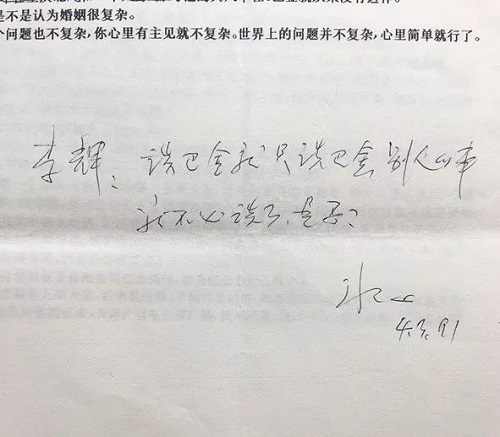 是不是认为婚姻很复杂。
个问题也不复杂，你心里有主见就不复杂。世界上的问题并不复杂，心里简单就行了。
李辉：谈巴金就只谈巴金，别人的事
就不必谈了，是否？
冰心
4.3.91